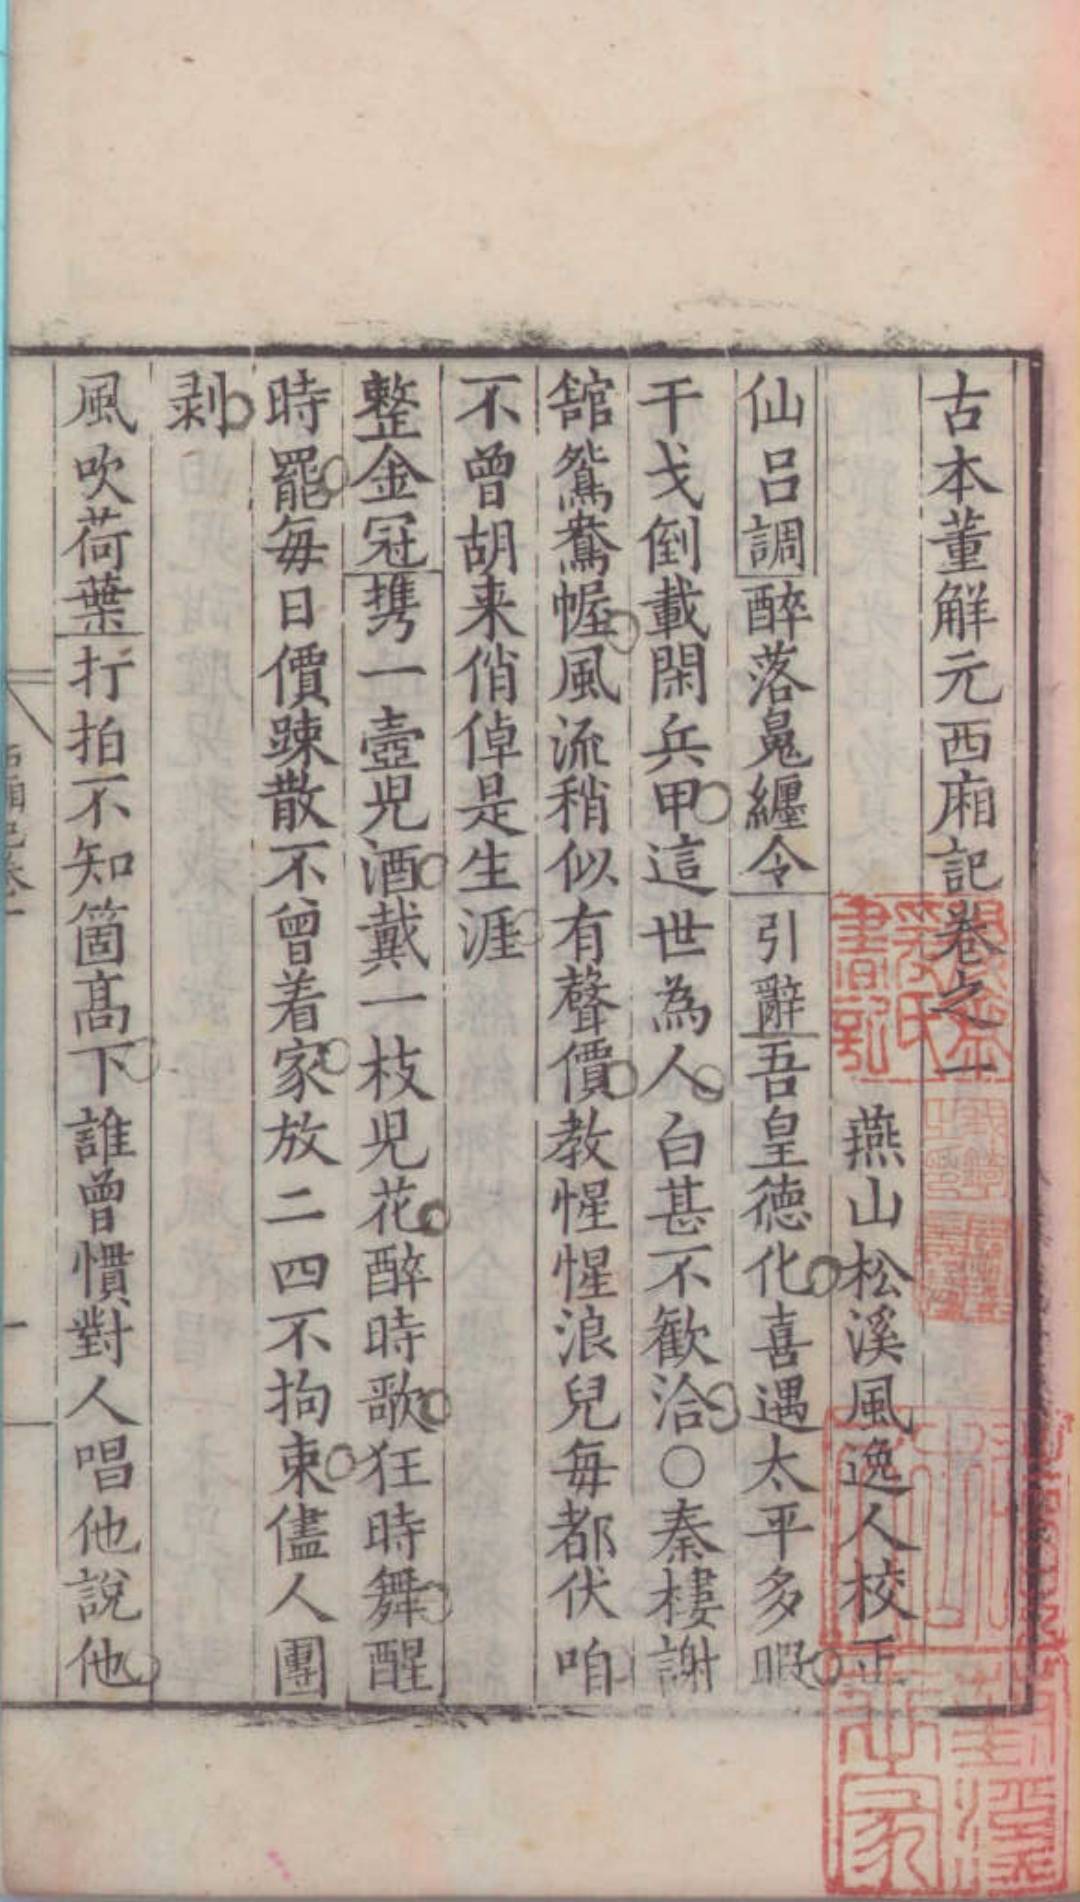 古本董解元西廂記卷之一
燕山松溪風逸人校正
仙呂調醉落魄纏令引辭吾皇德化喜遇太平多暇
干戈倒載閑兵甲這世為人白甚不歡洽○秦樓謝
館鴛鴦幄風流稍似有聲價教惺惺浪兒每都伏咱
不曾胡来俏倬是生涯
整金冠携一壺児酒戴一枝児花醉時歌狂時舞醒
時罷每日價踈散不曾着家放二四不拘束儘人團
剥
風吹荷葉打拍不知箇髙下誰曾慣對人唱他說他